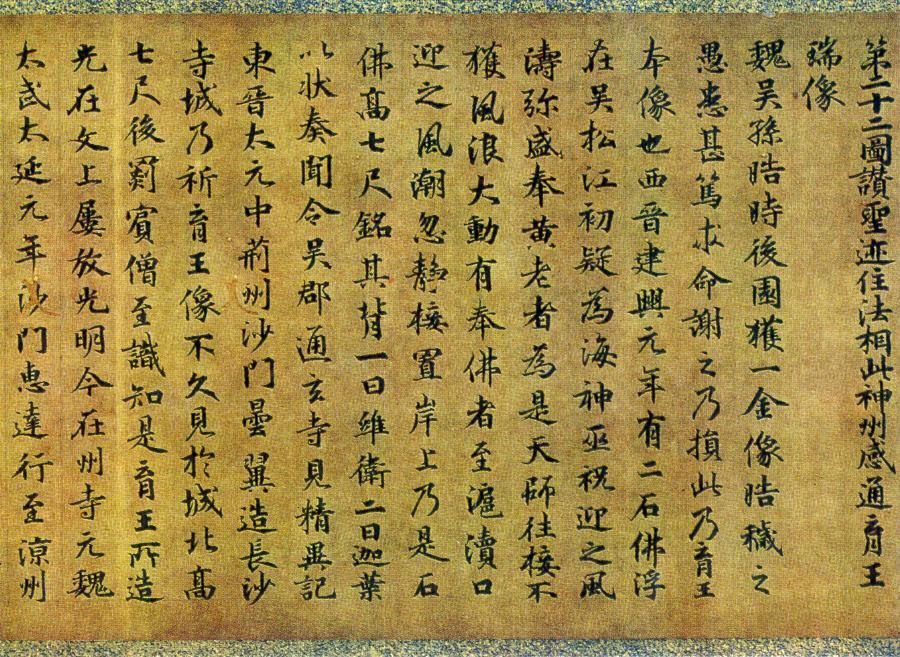 第二十二圖讚聖迹住法相此神州感通育王
瑞像
魏吳孫晧時後園獲一金像晧穢之
愚恚甚篤求命謝之乃損此乃育王
本像也西晉建興元年有二石佛浮
在吳松江初疑為海神巫祝迎之風
濤弥盛奉黃老者為是天師往接不
獲風浪大動有奉佛者至滬瀆口
迎之風潮忽靜接置岸上乃是石
佛髙七尺銘其背一曰維衛二曰迦葉
以狀奏聞令吳郡通玄寺見精異記
東晉太元中荊州沙門曇翼造長沙
寺城乃祈育王像不久見於城北髙
七尺後罽賓僧至識知是育王所造
光在文上屢放光明今在州寺元魏
太武太延元年沙門惠達行至涼州